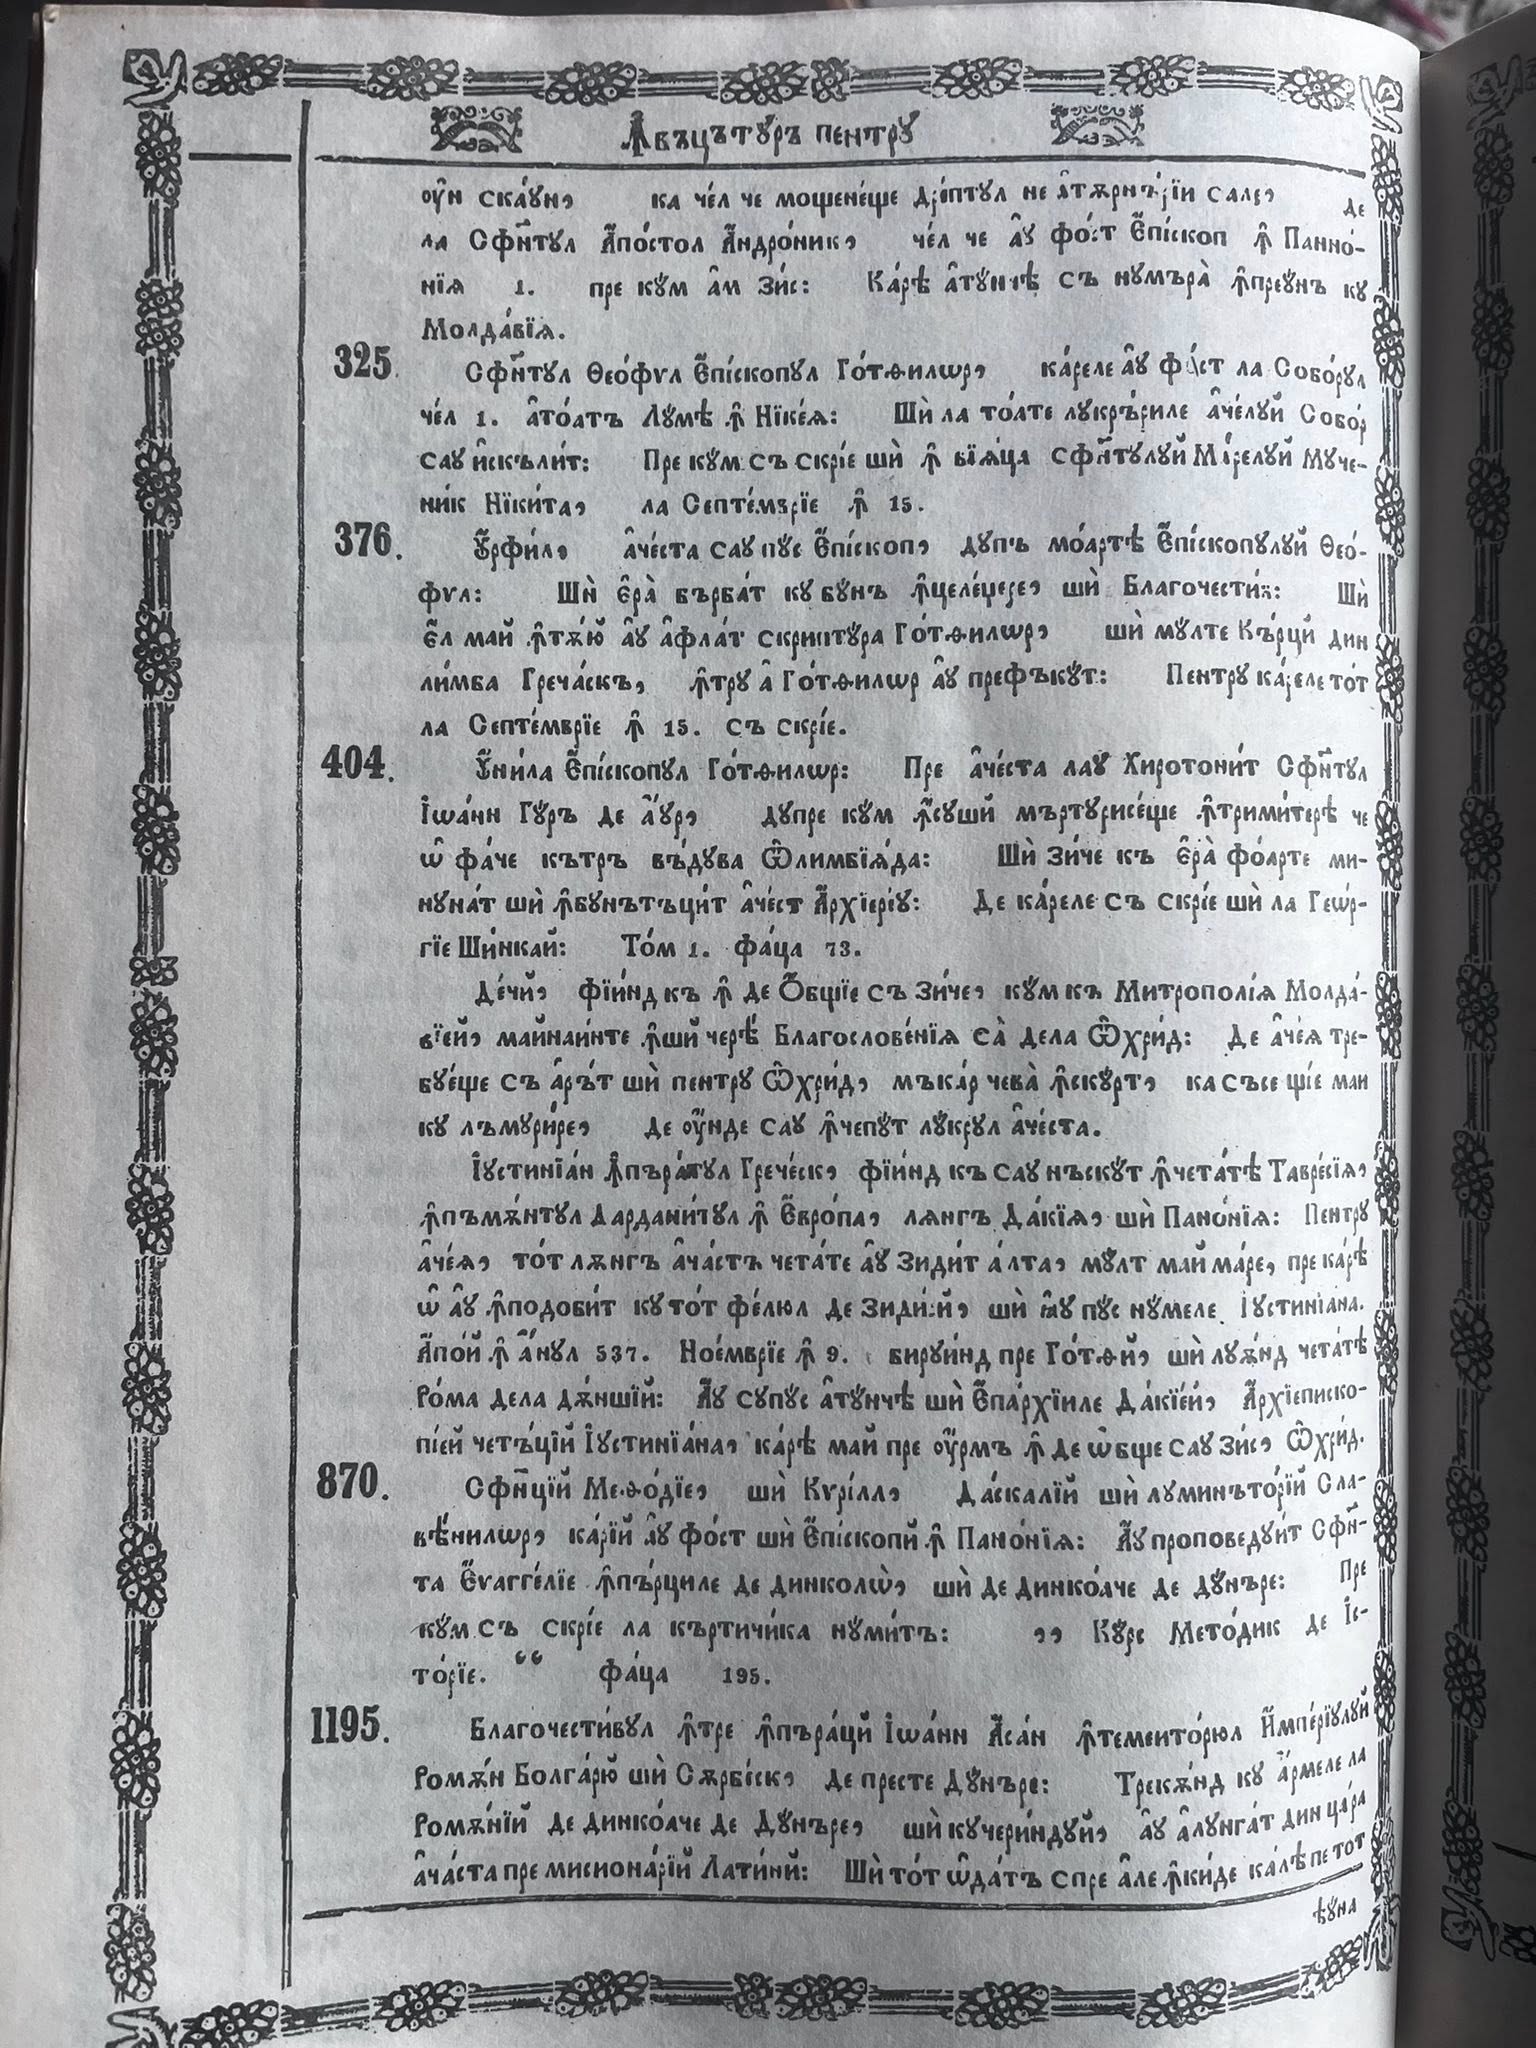 Ꙟвъцътꙋръ пентрꙋ
оу҆́н ска́ꙋн, ка че́л че мощене́ще дре́птꙋл не а҆тѫрнъ́рїи сале, де
ла Сфн҃тꙋл А҆по́стол А҆ндро́ник, че́л че а҆ꙋ фо́ст Е҆пі́скоп ꙟ҆ Панно́-
нїѧ 1. пре кꙋ́м а҆м зи́с: Ка́рѣ а҆тꙋ́нчѣ съ нꙋмъра̀ ꙟ҆преꙋнъ кꙋ
Молда́вїѧ.
325. Сфн҃тꙋл Ѳео́фѵл Е҆пі́скопꙋл Го́тѳилѡр, ка́реле а҆ꙋ фо́ст ла Собо́рꙋл
че́л 1. а҆то́атъ Лꙋ́мѣ ꙟ҆ Нїке́ѧ: Шѝ ла то́ате лꙋкрърїле а҆че́лꙋй Собо́р
саꙋ и҆скъли́т: Пре кꙋ́м съ скрі́е шѝ ꙟ҆ вїѧ́ца сфн҃тꙋлꙋй Ма́релꙋй Мꙋче-
ни́к Нїки́та, ла Септе́мврїе ꙟ҆ 15.
376. Оу҆рфи́л, а҆че́ста саꙋ пꙋ́с Е҆пі́скоп, дꙋпъ мо́артѣ Е҆пі́скопꙋлꙋй Ѳео́-
фѵл: Шѝ е҆ра̀ бърба́т кꙋ бꙋнъ ꙟ҆целе́џере, шѝ Благочести́в: Шѝ
е҆́л май ꙟ҆тѫ́ю а҆ꙋ а҆фла́т скриптꙋ́ра Го́тѳилѡр, шѝ мꙋ́лте Къ́рцй дин
ли́мба Греча́скъ, ꙟ҆трꙋ а҆ Го́тѳилѡр а҆ꙋ префъкꙋ́т: Пентрꙋ ка́реле то́т
ла Септе́мврїе ꙟ҆ 15. съ скрі́е.
404. Оу҆ни́ла Е҆пі́скопꙋл Го́тѳилѡр: Пре а҆че́ста лаꙋ Хиротони́т Сфн҃тꙋл
І҆ѡа́нн Гꙋ́ръ де а҆́ꙋр, дꙋпре кꙋм ꙟ҆сꙋши́ мъртꙋрисе́ще ꙟ҆трими́терѣ че
ѡ҆ фа́че кътръ въ́дꙋва Ѽлимбїѧ́да: Шѝ зи́че къ е҆ра̀ фо́арте ми-
нꙋна́т шѝ ꙟ҆бꙋнътъци́т а҆че́ст А҆рхїере́ꙋ: Де ка́реле съ скрі́е шѝ ла Геѡ́р-
гїе Ши́нкай: То́м 1. фа́ца 73.
Де́чй, фїи́нд къ ꙟ҆ де О҆бщїе съ зи́че, кꙋ́м къ Митрополі́ѧ Молда́-
вїей, май наи́нте ꙟ҆ши черѣ́ Благослове́нїѧ са̀ дела Ѽхри́д: Де а҆че́ѧ тре-
бꙋе́ще съ а҆ръ́т шѝ пентрꙋ Ѽхри́д, мъка́р чева̀ ꙟ҆скꙋ́рт, ка съсе щі́е май
кꙋ лъмꙋри́ре, де оу҆́нде саꙋ ꙟ҆чепꙋ́т лꙋ́крꙋл а҆че́ста.
І҆ꙋстинїа́н Ꙟ҆пъра́тꙋл Грече́ск, фїи́нд къ саꙋ нъскꙋ́т ꙟ҆чета́тѣ Тавре́сїѧ,
ꙟ҆пъмѫ́нтꙋл Дардани́тꙋл ꙟ҆ Е҆вро́па, лѫнгъ Да́кїѧ, шѝ Пано́нїѧ: Пентрꙋ
а҆че́ѧ, то́т лѫ́нгъ а҆ча́стъ чета́те а҆ꙋ зиди́т а́лта, мꙋ́лт май ма́ре, пре ка́рѣ
ѡ҆ а҆ꙋ ꙟ҆подоби́т кꙋ то́т фе́люл де зиди́рй, шѝ ꙗ҆ꙋ пꙋ́с нꙋ́меле І҆ꙋстинїана.
А҆по́й ꙟ҆ а҆́нꙋл 537. Ное́мврїе ꙟ҆ 9. бирꙋи́нд пре Го́тѳй, шѝ лꙋѫ́нд чета́тѣ
Ро́ма дела дѫ́ншїй: А҆ꙋ сꙋпꙋ́с а҆тꙋ́нчѣ шѝ Е҆па́рхїиле Да́кїей, А҆рхїеписко-
пі́ей четъ́ций І҆ꙋстинїа́на, ка́рѣ май пре оу҆́рмъ ꙟ҆ де ѡ҆́бще саꙋ зи́с, Ѽхри́д.
870. Сфн҃цїй Меѳо́дїе, шѝ Кѵрі́лл, Да́скалїй шѝ лꙋминъто́рїй Сла-
вѣ́нилѡр, ка́рїй а҆ꙋ фо́ст шѝ Е҆пі́скопй ꙟ҆ Пано́нїѧ: А҆ꙋ проповедꙋи́т Сфн҃-
та Е҆ѵагге́лїе ꙟ҆пъ́рциле де динколѡ̀, шѝ де динко́аче де Дꙋ́нъре: Пре
кꙋ́м съ скрі́е ла къртичи́ка нꙋми́тъ: ,, Кꙋ́рс Мето́дик де І҆с-
то́рїе. “ фа́ца 195.
1195. Благочести́вꙋл ꙟ҆тре ꙟ҆пъра́цй І҆ѡа́нн А҆са́н ꙟ҆темеито́рюл И҆мпе́рїꙋлꙋй
Ромѫ́н Болга́рю шѝ Сѫрбе́ск, де песте Дꙋ́нъре: Трекѫ́нд кꙋ а҆́рмеле ла
Ромѫ́нїй де динко́аче де Дꙋ́нъре, шѝ кꙋчери́ндꙋй, а҆ꙋ а҆лꙋнга́т дин ца́ра
а҆ча́ста пре мисиона́рїй Лати́нй: Шѝ то́т ѡ҆да́тъ спре а҆ле ꙟ҆ки́де ка́лѣ пе тот
ѣꙋна